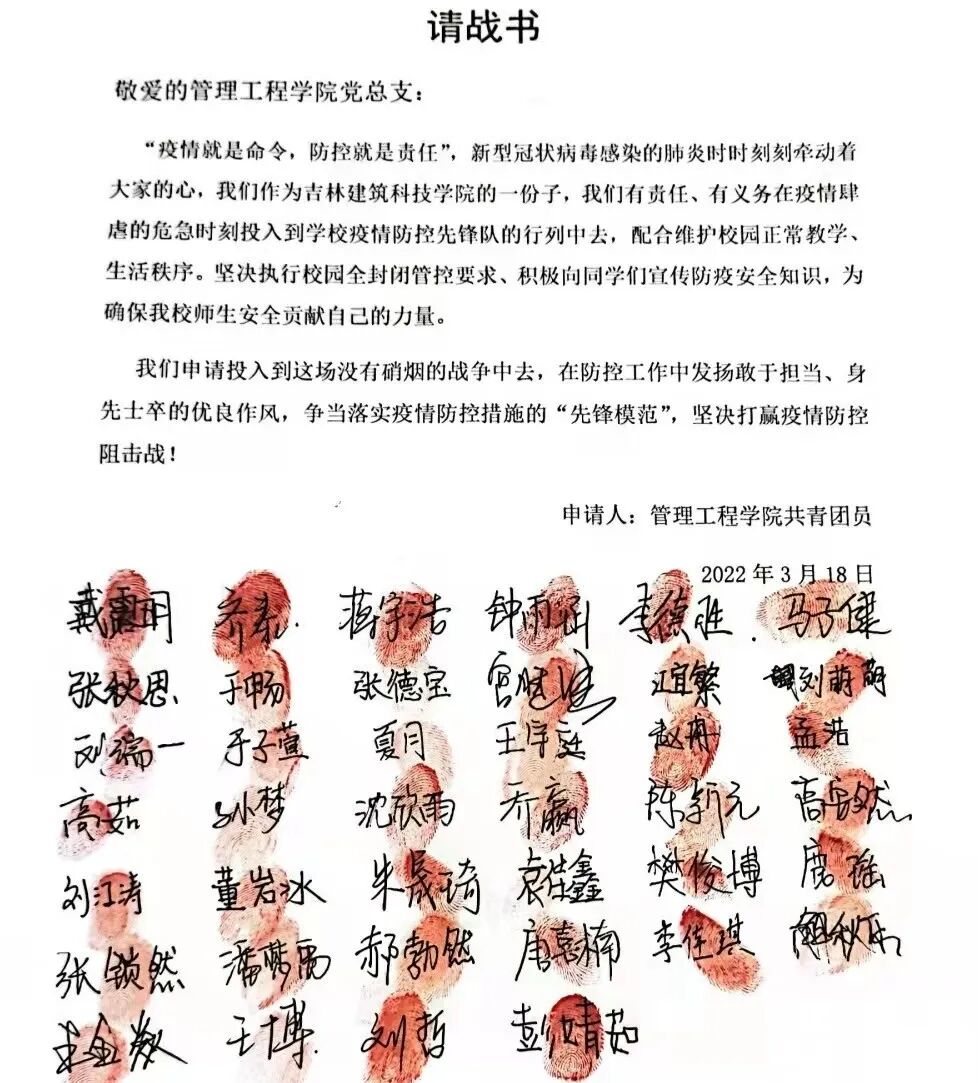 请战书
敬爱的管理工程学院党总支：
“疫情就是命令，防控就是责任”，新型冠状病毒感染的肺炎时时刻刻牵动着
大家的心，我们作为吉林建筑科技学院的一份子，我们有责任、有义务在疫情肆
虐的危急时刻投入到学校疫情防控先锋队的行列中去，配合维护校园正常教学、
生活秩序。坚决执行校园全封闭管控要求、积极向同学们宣传防疫安全知识，为
确保我校师生安全贡献自己的力量。
我们申请投入到这场没有硝烟的战争中去，在防控工作中发扬敢于担当、身
先士卒的优良作风，争当落实疫情防控措施的“先锋模范”，坚决打赢疫情防控
阻击战！
申请人：管理工程学院共青团员
2022 年 3 月 18 日
蒋宇浩 钟雨涵 李德胜 马子健
张秋思 于畅 张德宝 刘萌萌
刘瑞一 于子萱 夏月 王宇廷 赵冉 孟浩
高茹 孙梦 沈欣雨 乔赢 陈新元
刘江涛 董岩冰 朱晟琦 樊俊博 唐瑶
张锁然 郝勃然 唐嘉楠 李佳琪
王博 刘哲 彭婧茹